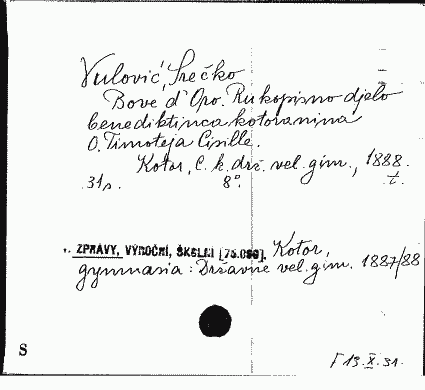 Vulović, Srećko
Bove d'Oro. Rukopisno djelo
benediktinca kotoranina
O. Timoteja Cisille.
Kotor, C. k. drž. vel. gim., 1888.
31 s. 8°. t.
ZPRÁVY, VÝROČNÍ, ŠKOLNÍ [75.000]. Kotor,
gymnasia: Državne vel. gim. 1887/88
S
13.X.31.